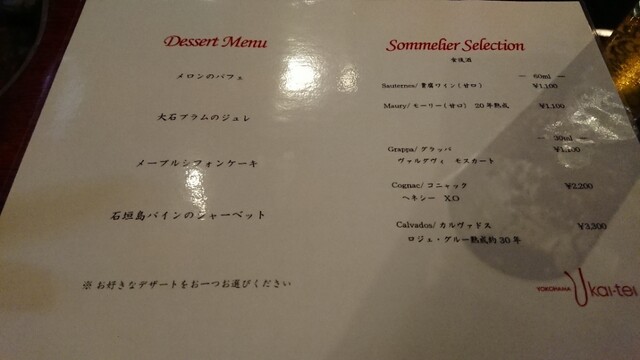 Dessert Menu
メロンのパフェ
大石プラムのジュレ
メープルシフォンケーキ
石垣島パインのシャーベット
※お好きなデザートをお一つお選びください
Sommelier Selection
食後酒
— 60ml —
Sauternes/ 貴腐ワイン(甘口) ¥1,100
Maury/ モーリー(甘口) 20年熟成 ¥1,100
— 30ml —
Grappa/ グラッパ ¥1,100
ヴァルダヴィ モスカート
Cognac/ コニャック ¥2,200
ヘネシー X.O
Calvados/ カルヴァドス ¥3,300
ロジェ・グルー熟成約30年
YOKOHAMA Ukai-tei